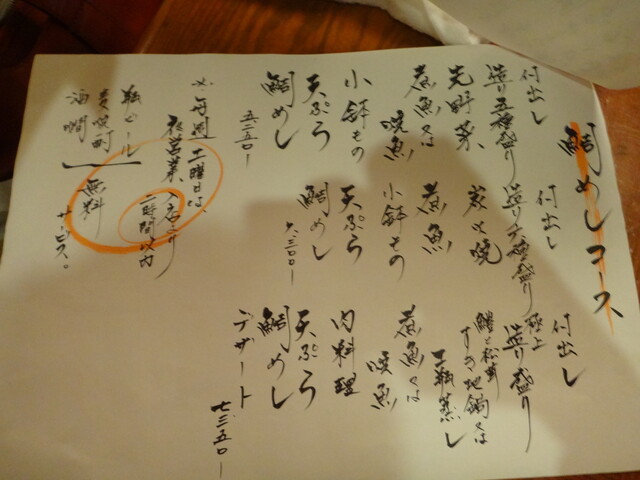 鯛めしコース
付出し
造り五種盛り
先野菜
煮魚又は
焼魚
小鉢もの
天ぷら
鯛めし
五、二五〇ー
付出し
造り六種盛り
炭火焼
煮魚
小鉢もの
天ぷら
鯛めし
六、三〇〇ー
付出し
極上
造り盛り
鱧と松茸
すき地鍋又は
土瓶蒸し
煮魚又は
焼魚
肉料理
天ぷら
鯛めし
デザート
七、三五〇ー
※毎週土曜日は、
入店より
二時間以内
瓶ビール
麦焼酎
酒燗
無料
サービス。